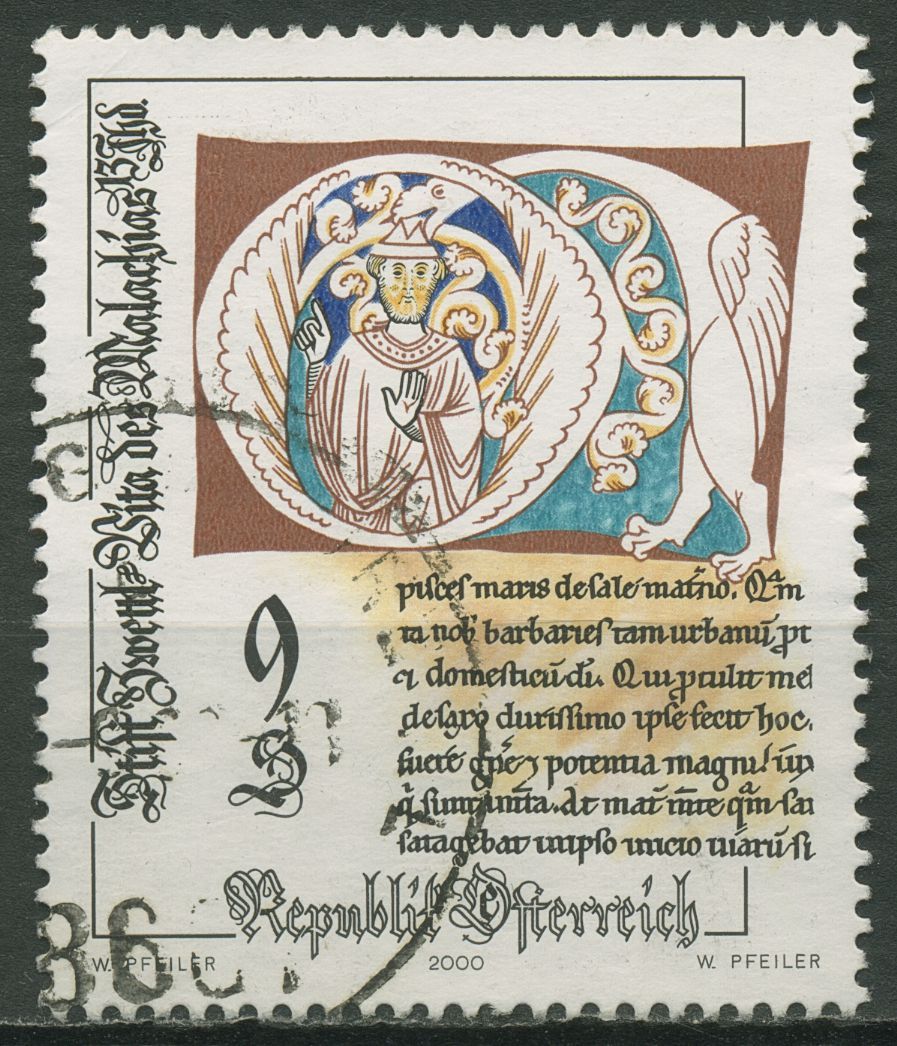 Stift Zwettl-Vita des Malachias 13 Jhd.
9
S
pisces maris de sale mat̄no. Qm̄
ta nob barbaries tam urbanū ꝓt
⁊ domesticū di. Qui ꝓtulit mel
de saxo durissimo ipse fecit hoc.
potentia magni
At
satagebat in ipso inicio viarū si
Republik Österreich
W. PFEILER 2000 W. PFEILER
86